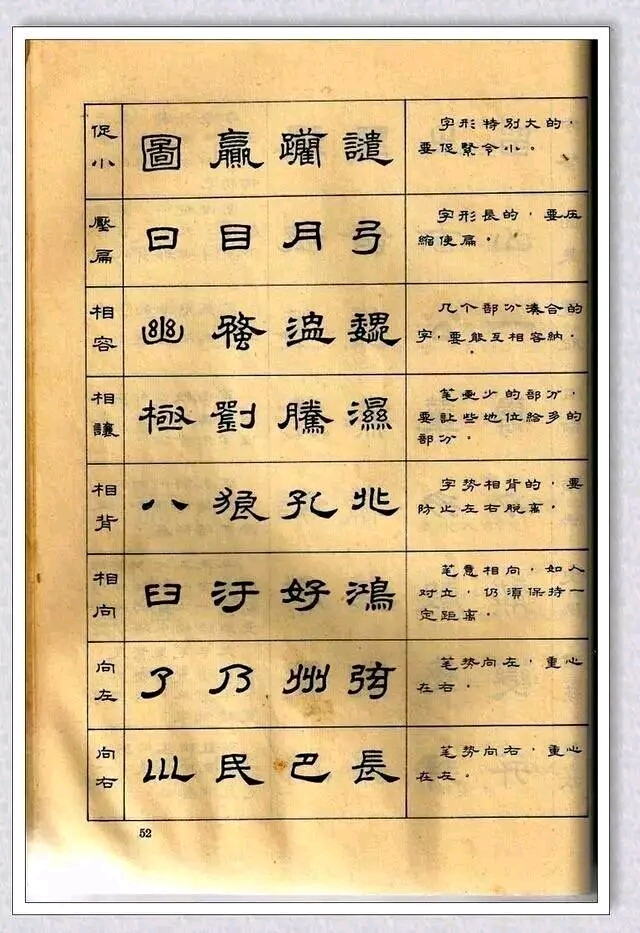 促小
圖 贏 譴
字形特别大的,
要促緊令小。
壓扁
日 目 月 弓
字形長的,要压
縮使扁。
相容
幽 温 魏
几个部分湊合的
字,要能互相容納。
相讓
極 劉 騰 濕
笔画少的部分,
要让些地位給多的
部分。
相背
八 狼 孔
字势相背的,要
防止左右脫离。
相向
臼 汙 好 鴻
笔意相向,如人
对立,仍須保持一
定距离。
向左
了 乃 州
笔势向左,重心
在右。
向右
民 巴 長
笔势向右,重心
在左。
52